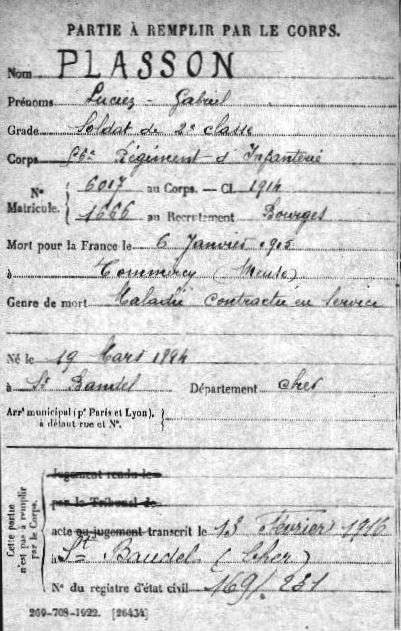 PARTIE À REMPLIR PAR LE CORPS.
Nom PLASSON
Prénoms Lucien - Gabriel
Grade Soldat de 2e classe
Corps Régiment d'Infanterie
N° Matricule. { 6017 au Corps. — Cl. 1914
1666 au Recrutement Bourges
Mort pour la France le 6 Janvier 1915
à Commercy (Meuse)
Genre de mort Maladie contractée en service
Né le 19 Mars 1894
à St Baudel Département Cher
Arrt municipal (pr Paris et Lyon),
à défaut rue et N°.
Cette partie n'est pas à remplir par le Corps.
Jugement rendu le
par le Tribunal de
acte ou jugement transcrit le 13 Février 1916
à St Baudel (Cher)
N° du registre d'état civil 169/231
269-708-1922. [26434]